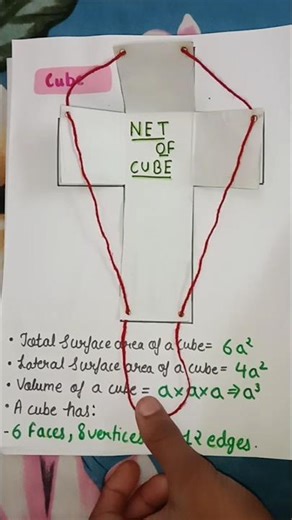 Cube
NET
OF
CUBE
• Total surface area of a cube = 6a²
• Lateral surface area of a cube = 4a²
• Volume of a cube = a×a×a ⇒ a³
• A cube has:
- 6 Faces, 8 vertices 12 edges.